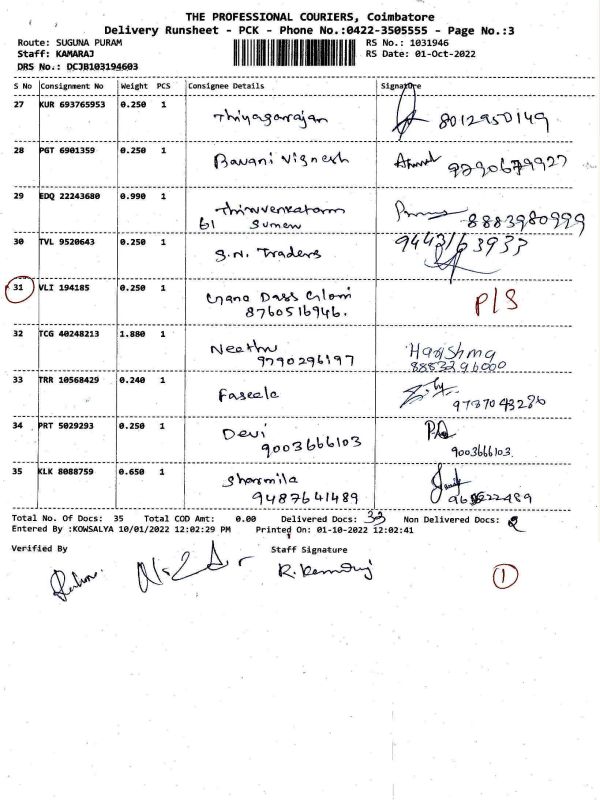 THE PROFESSIONAL COURIERS, Coimbatore
Delivery Runsheet - PCK - Phone No.:0422-3505555 - Page No.:3
Route: SUGUNA PURAM RS No.: 1031946
Staff: KAMARAJ RS Date: 01-Oct-2022
DRS No.: DCJB103194603
S No Consignment No Weight PCS Consignee Details Signature
27 KUR 693765953 0.250 1 Thiyagarajan 8012950149
28 PGT 6901359 0.250 1 Bavani Vignesh 9790679927
29 EDQ 22243680 0.990 1 Thiruvenkatam 8883980999
61
30 TVL 9520643 0.250 1 S.N. Traders 9443163933
31 VLI 194185 0.250 1 P/S
8760516946.
32 TCG 40248213 1.880 1 Neethu Harishma
9790296197
33 TRR 10568429 0.240 1 Faseela
9787043286
34 PRT 5029293 0.250 1 Devi
9003666103 9003666103.
35 KLK 8088759 0.650 1 Sharmila
9487641489
Total No. Of Docs: 35 Total COD Amt: 0.00 Delivered Docs: 33 Non Delivered Docs: 2
Entered By :KOWSALYA 10/01/2022 12:02:29 PM Printed On: 01-10-2022 12:02:41
Verified By Staff Signature
R. Kamaraj
1